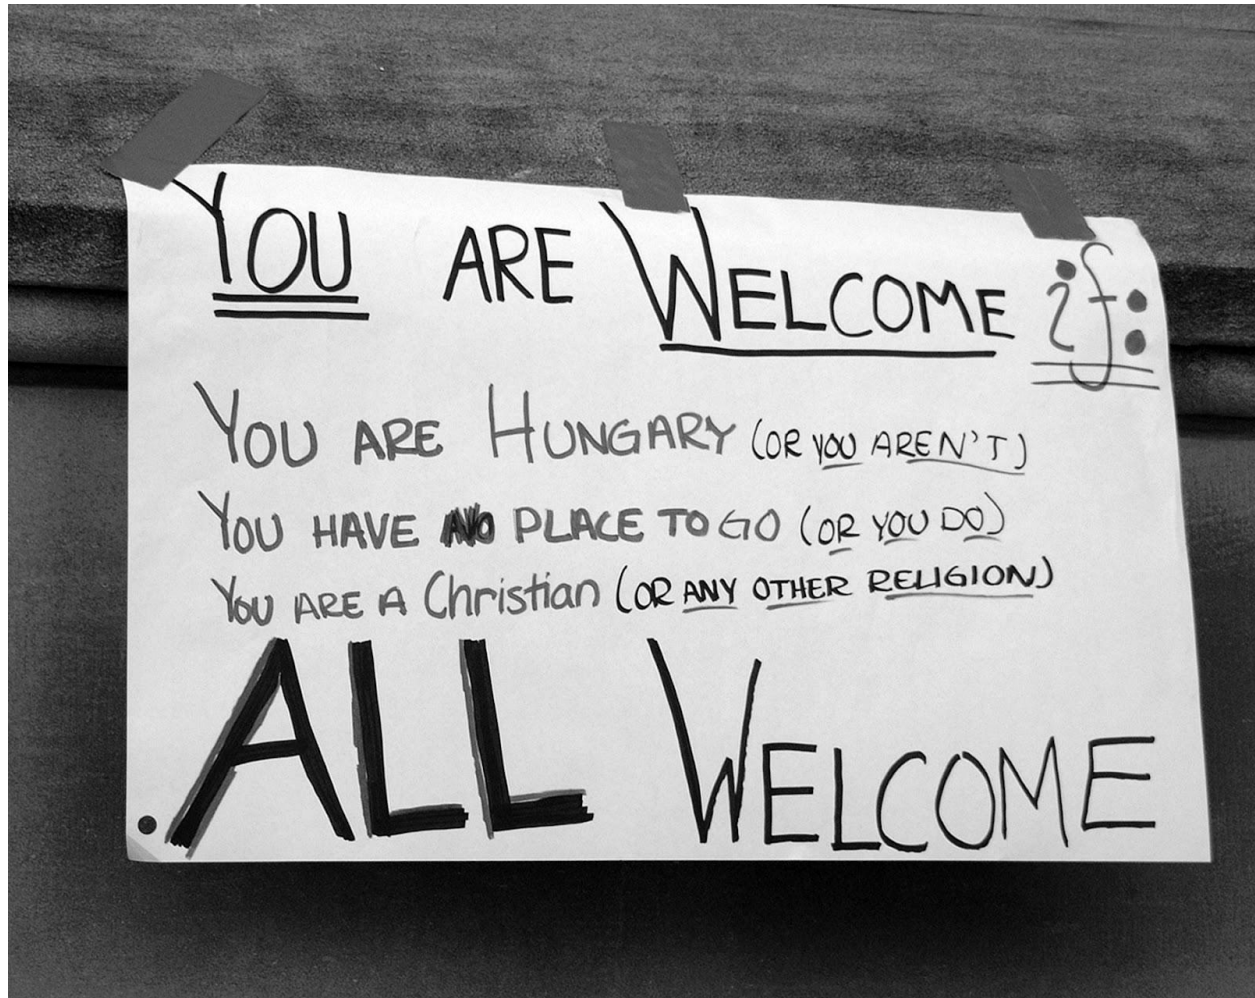 YOU ARE WELCOME if:
YOU ARE HUNGARY (OR YOU AREN'T)
YOU HAVE NO PLACE TO GO (OR YOU DO)
YOU ARE A Christian (OR ANY OTHER RELIGION)
ALL WELCOME